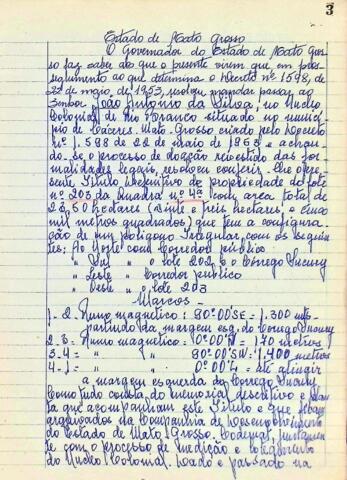 3
Estado de Mato Grosso
O Governador do Estado de Mato Gros-
so faz saber aos que o presente virem que, em pros-
seguimento ao que determina o Decreto nº 1.598, de
22 de maio, de 1.953, resolveu mandar passar ao
Senhor João Antonio da Silva, no Nucleo
Colonial de Rio Branco situado no municí-
pio de Cáceres. Mato-Grosso criado pelo Decreto
nº 1.598 de 22 de maio de 1953 e achan-
do-se o processo de doação revestido das for-
malidades legais, resolveu conferir-lhe o pre-
sente Título Definitivo de propriedade do lote
nº 203 da Quadra nº 4ª com area total de
23,50 hectares (vinte e três hectares, e cinco
mil metros quadrados) que tem a configura-
ção de um poligono Irregular, com os seguin-
tes: Ao Norte com Corredor público
" Sul " o lote 202 e o Corrego
" Leste " Corredor público
" Oeste " o lote 203
Marcos -
1 - 2. Rumo magnetico: 80º00'SE = 1.300 mts
partindo da margem esq. do Corrego
2. 3 = Rumo magnetico: 10º00' = 170 metros
3. 4 = " " 80º00'SW: 1.400 metros
4. - 1 " " 0º00' = até atingir
a margem esquerda do Corrego
Como tudo consta do memorial descritivo e plan-
ta que acompanham este Titulo e que
arquivados na Companhia de Desenvolvimento
do Estado de Mato Grosso. Codemat, juntamen-
te com o processo de medição e
do Nucleo Colonial. Dado e passado na